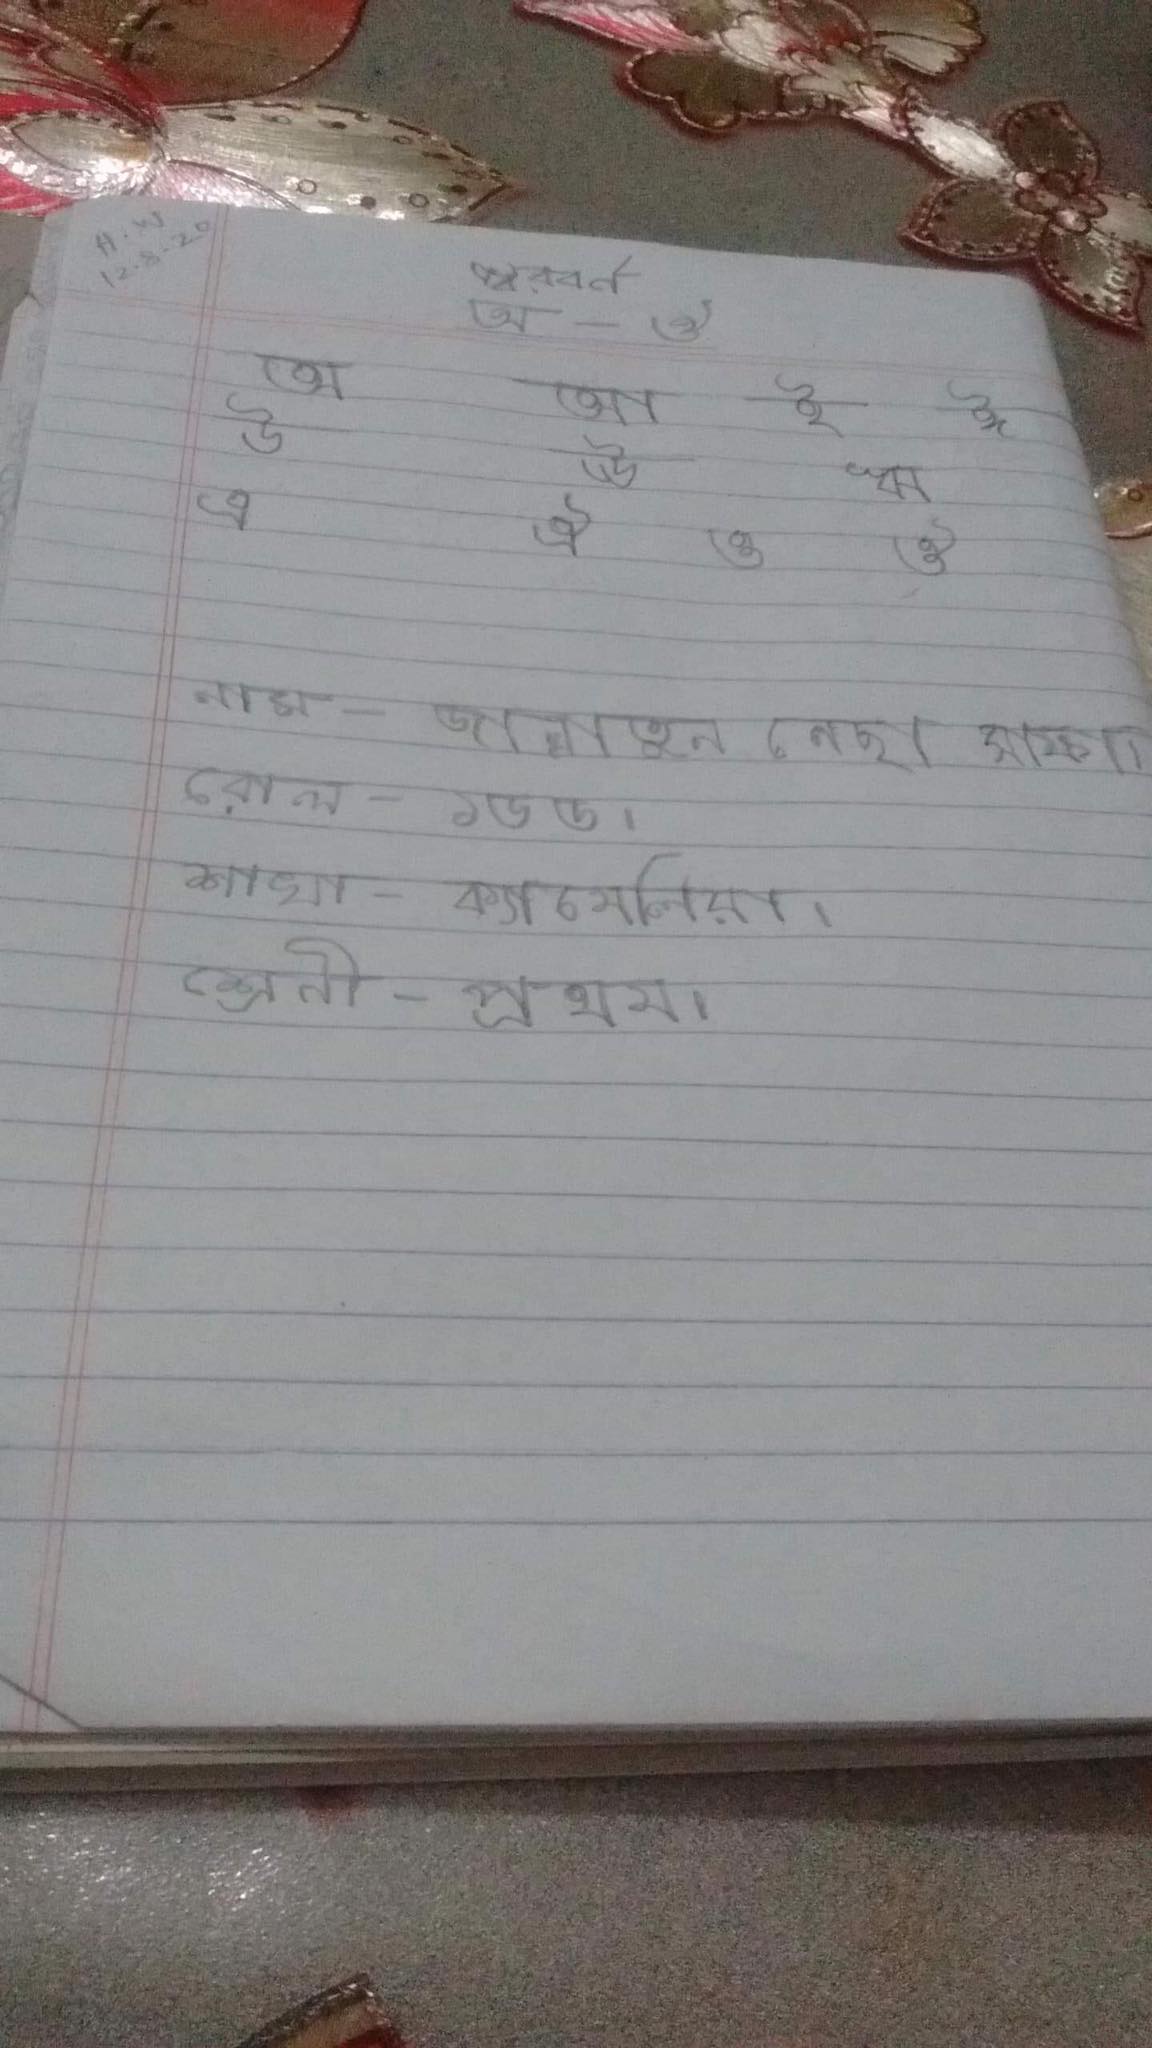 H.W
12.8.20
স্বরবর্ন
অ - ঔ
অ আ ই ঈ
উ ঊ ঋ
এ ঐ ও ঔ
নাম - জান্নাতুন নেছা সাফা।
রোল - ১৬৬।
শাখা - ক্যামেলিয়া।
শ্রেনী - প্রথম।